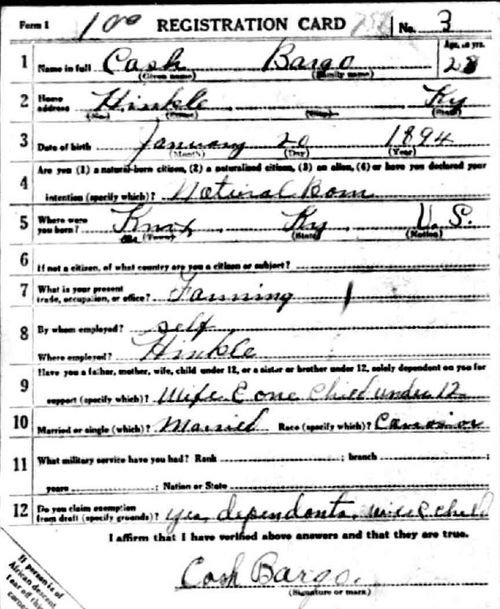 Form 1 REGISTRATION CARD No. 3
Age, in yrs.
1 Name in full Cash Bargo 23
(Given name) (Family name)
2 Home address Hinkle Ky
(No.) (Street) (City) (State)
3 Date of birth January 20 1894
(Month) (Day) (Year)
Are you (1) a natural-born citizen, (2) a naturalized citizen, (3) an alien, (4) or have you declared your
4 intention (specify which)? Natural Born
5 Where were you born? Knox Ky U. S.
(Town) (State) (Nation)
6 If not a citizen, of what country are you a citizen or subject?
7 What is your present trade, occupation, or office? Farming
8 By whom employed? self
Where employed? Hinkle
Have you a father, mother, wife, child under 12, or a sister or brother under 12, solely dependent on you for
9 support (specify which)? Wife & one child under 12
10 Married or single (which)? Married Race (specify which)?
11 What military service have you had? Rank ; branch ;
years ; Nation or State
12 Do you claim exemption from draft (specify grounds)? yes, dependants, wife & child
I affirm that I have verified above answers and that they are true.
Cash Bargo.
(Signature or mark)
If person is of
African descent
tear off this
corner